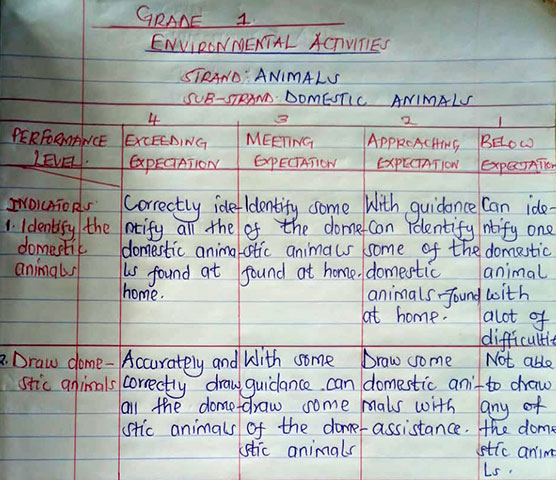 GRADE 1.
ENVIRONMENTAL ACTIVITIES
STRAND: ANIMALS
SUB-STRAND: DOMESTIC ANIMALS
4 3 2 1
PERFORMANCE LEVEL.
EXCEEDING
EXPECTATION
MEETING
EXPECTATION
APPROACHING
EXPECTATION
BELOW
EXPECTATION
INDICATORS
1. Identify the
domestic
animals
Correctly ide-
ntify all the
domestic anima-
ls found at
home.
Identify some
of the dome-
stic animals
found at home.
With guidance
can identify
some of the
domestic
animals found
at home.
Can ide-
ntify one
domestic
animal
with
alot of
difficultie
2. Draw dome-
stic animals
Accurately and
correctly draw
all the dome-
stic animals
With some
guidance can
draw some
of the dome-
stic animals
Draw some
domestic ani-
mals with
assistance.
Not able
to draw
any of
the dome
stic anima
ls.